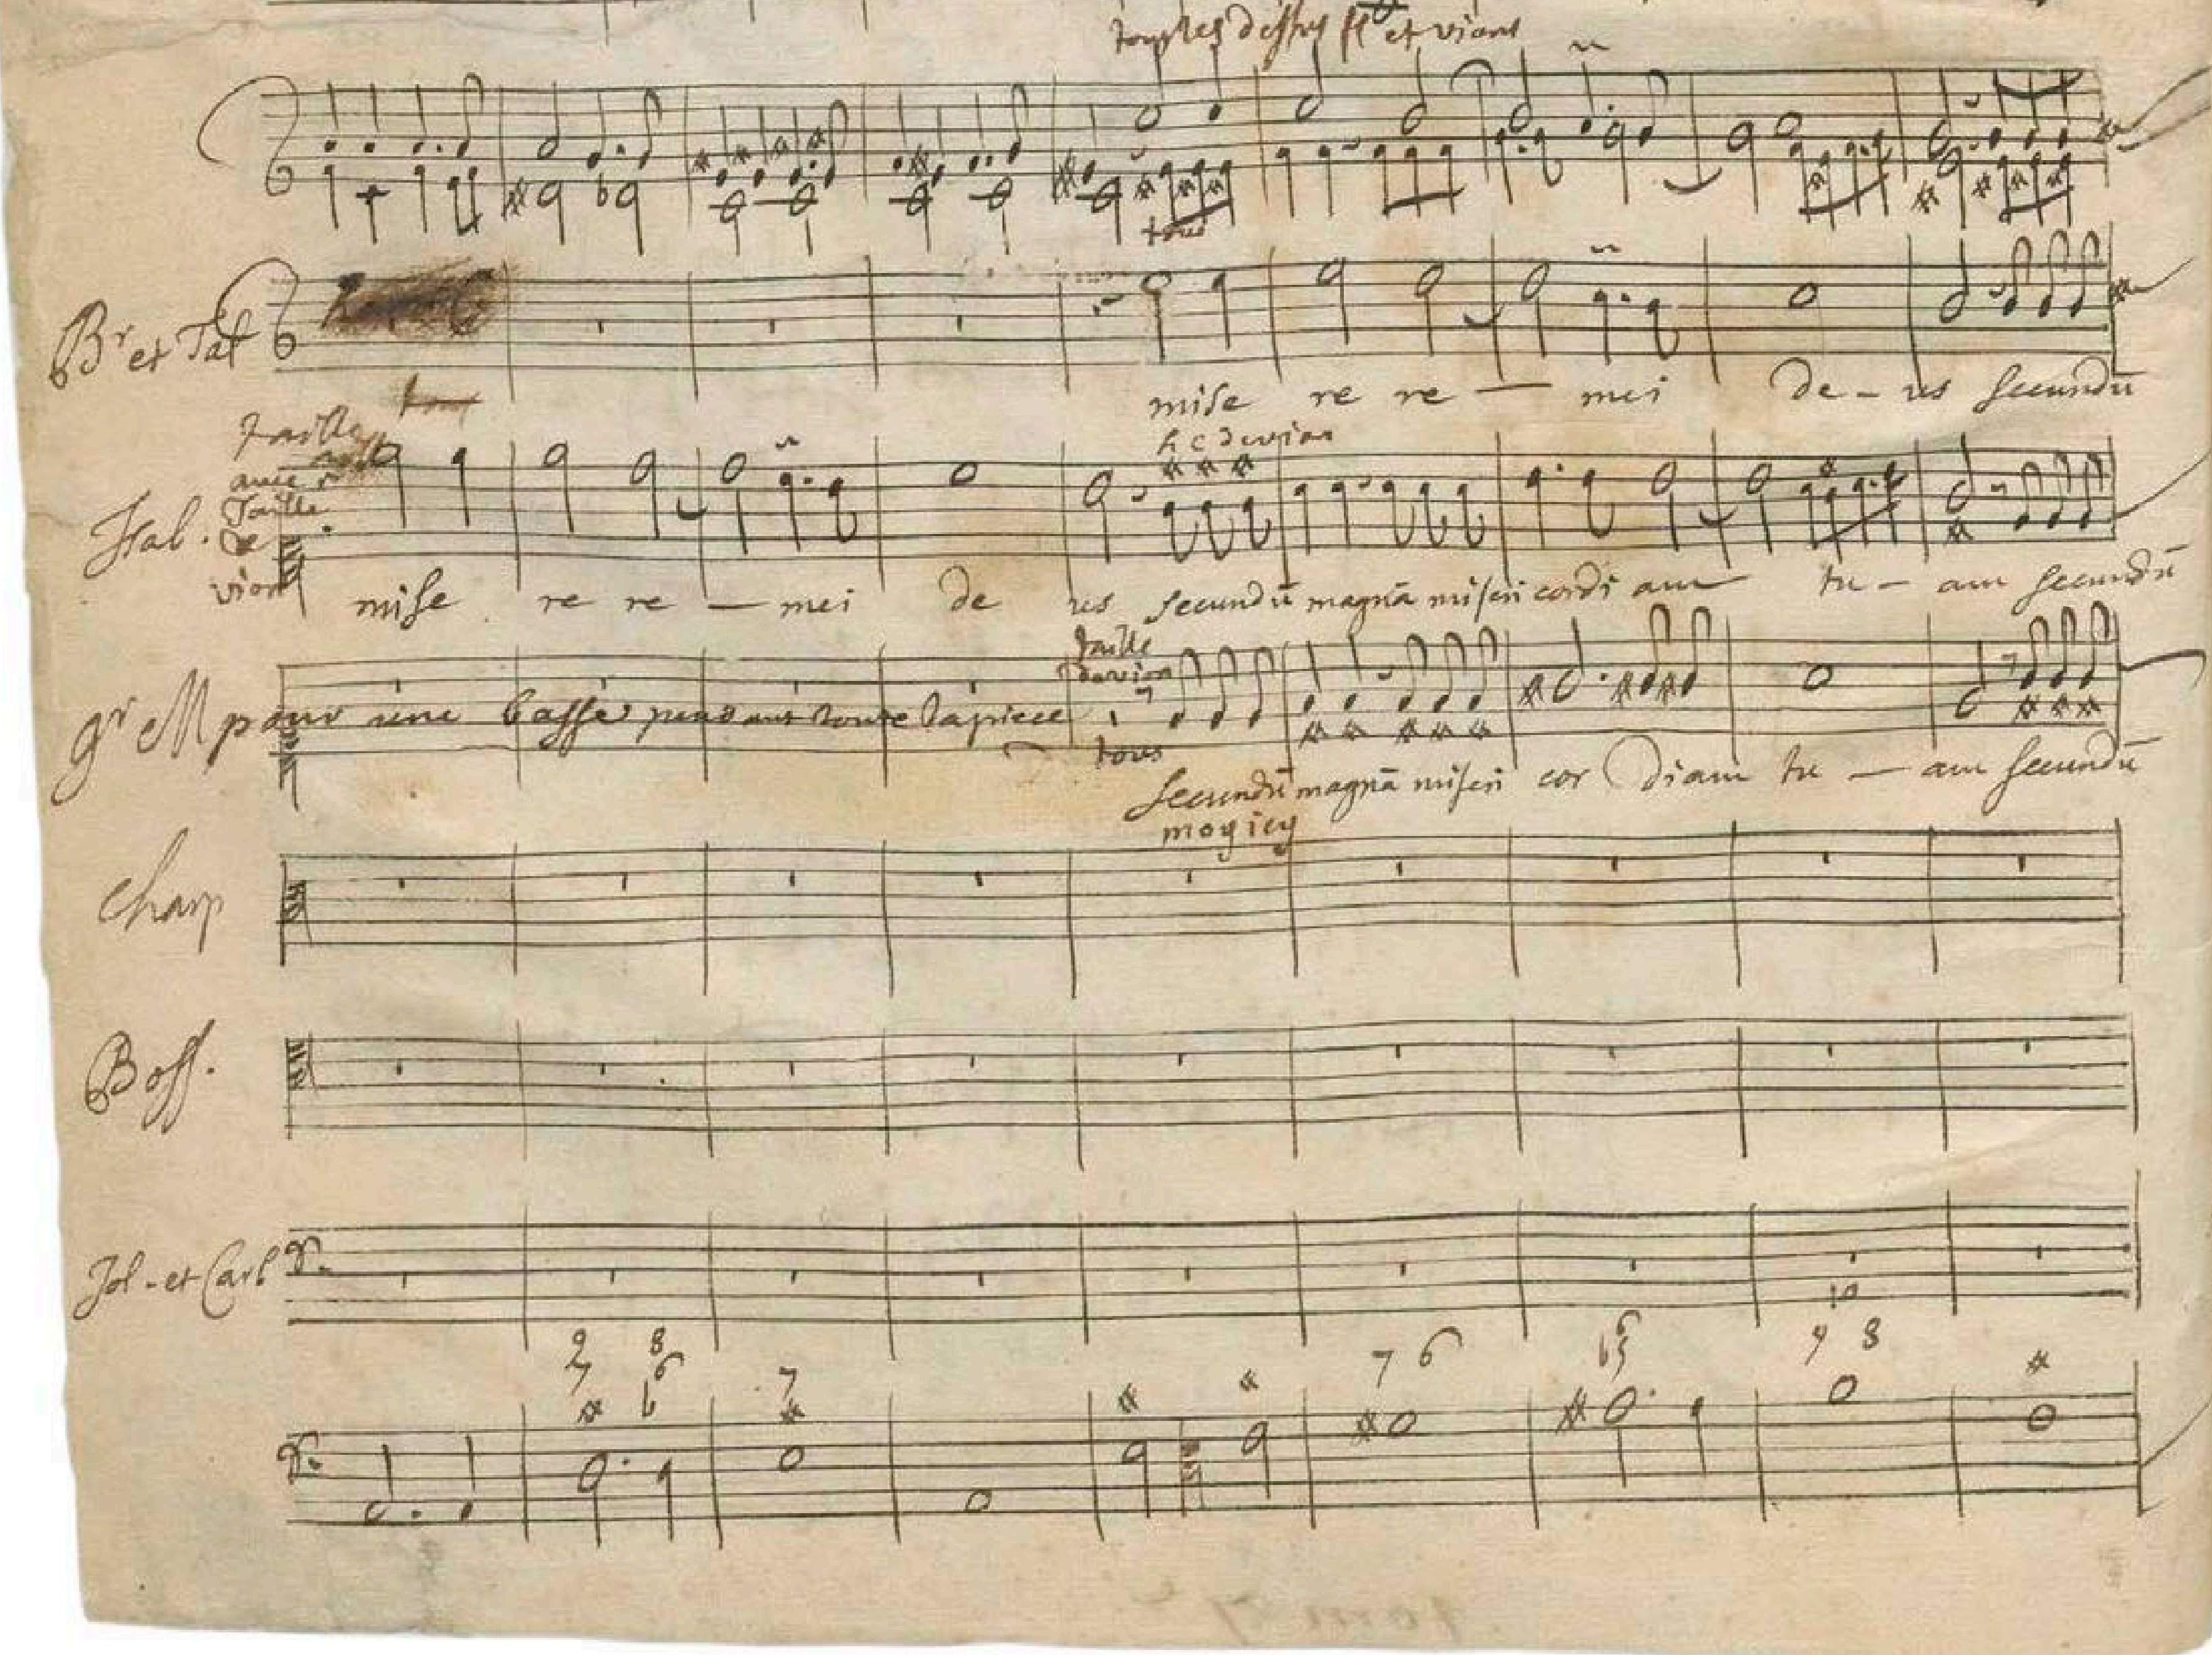 tous les dessus fl et violons
tous
Br et Tal
mise re re — mei de - us secundū
Taille
avec
Taille
de
violon
h c de violon
Isal.
mise re re — mei de us secundū magnā miseri cordi am tu - am secundū
taille
de violon
gr M pour une basse pendant toute la piece
tous
secundū magnā miseri cor diam tu — am secundū
moy icy
Charp
Boss.
Jol - et Carl
10
9 8 7 6 b 7 7 6 6 b5 9 8